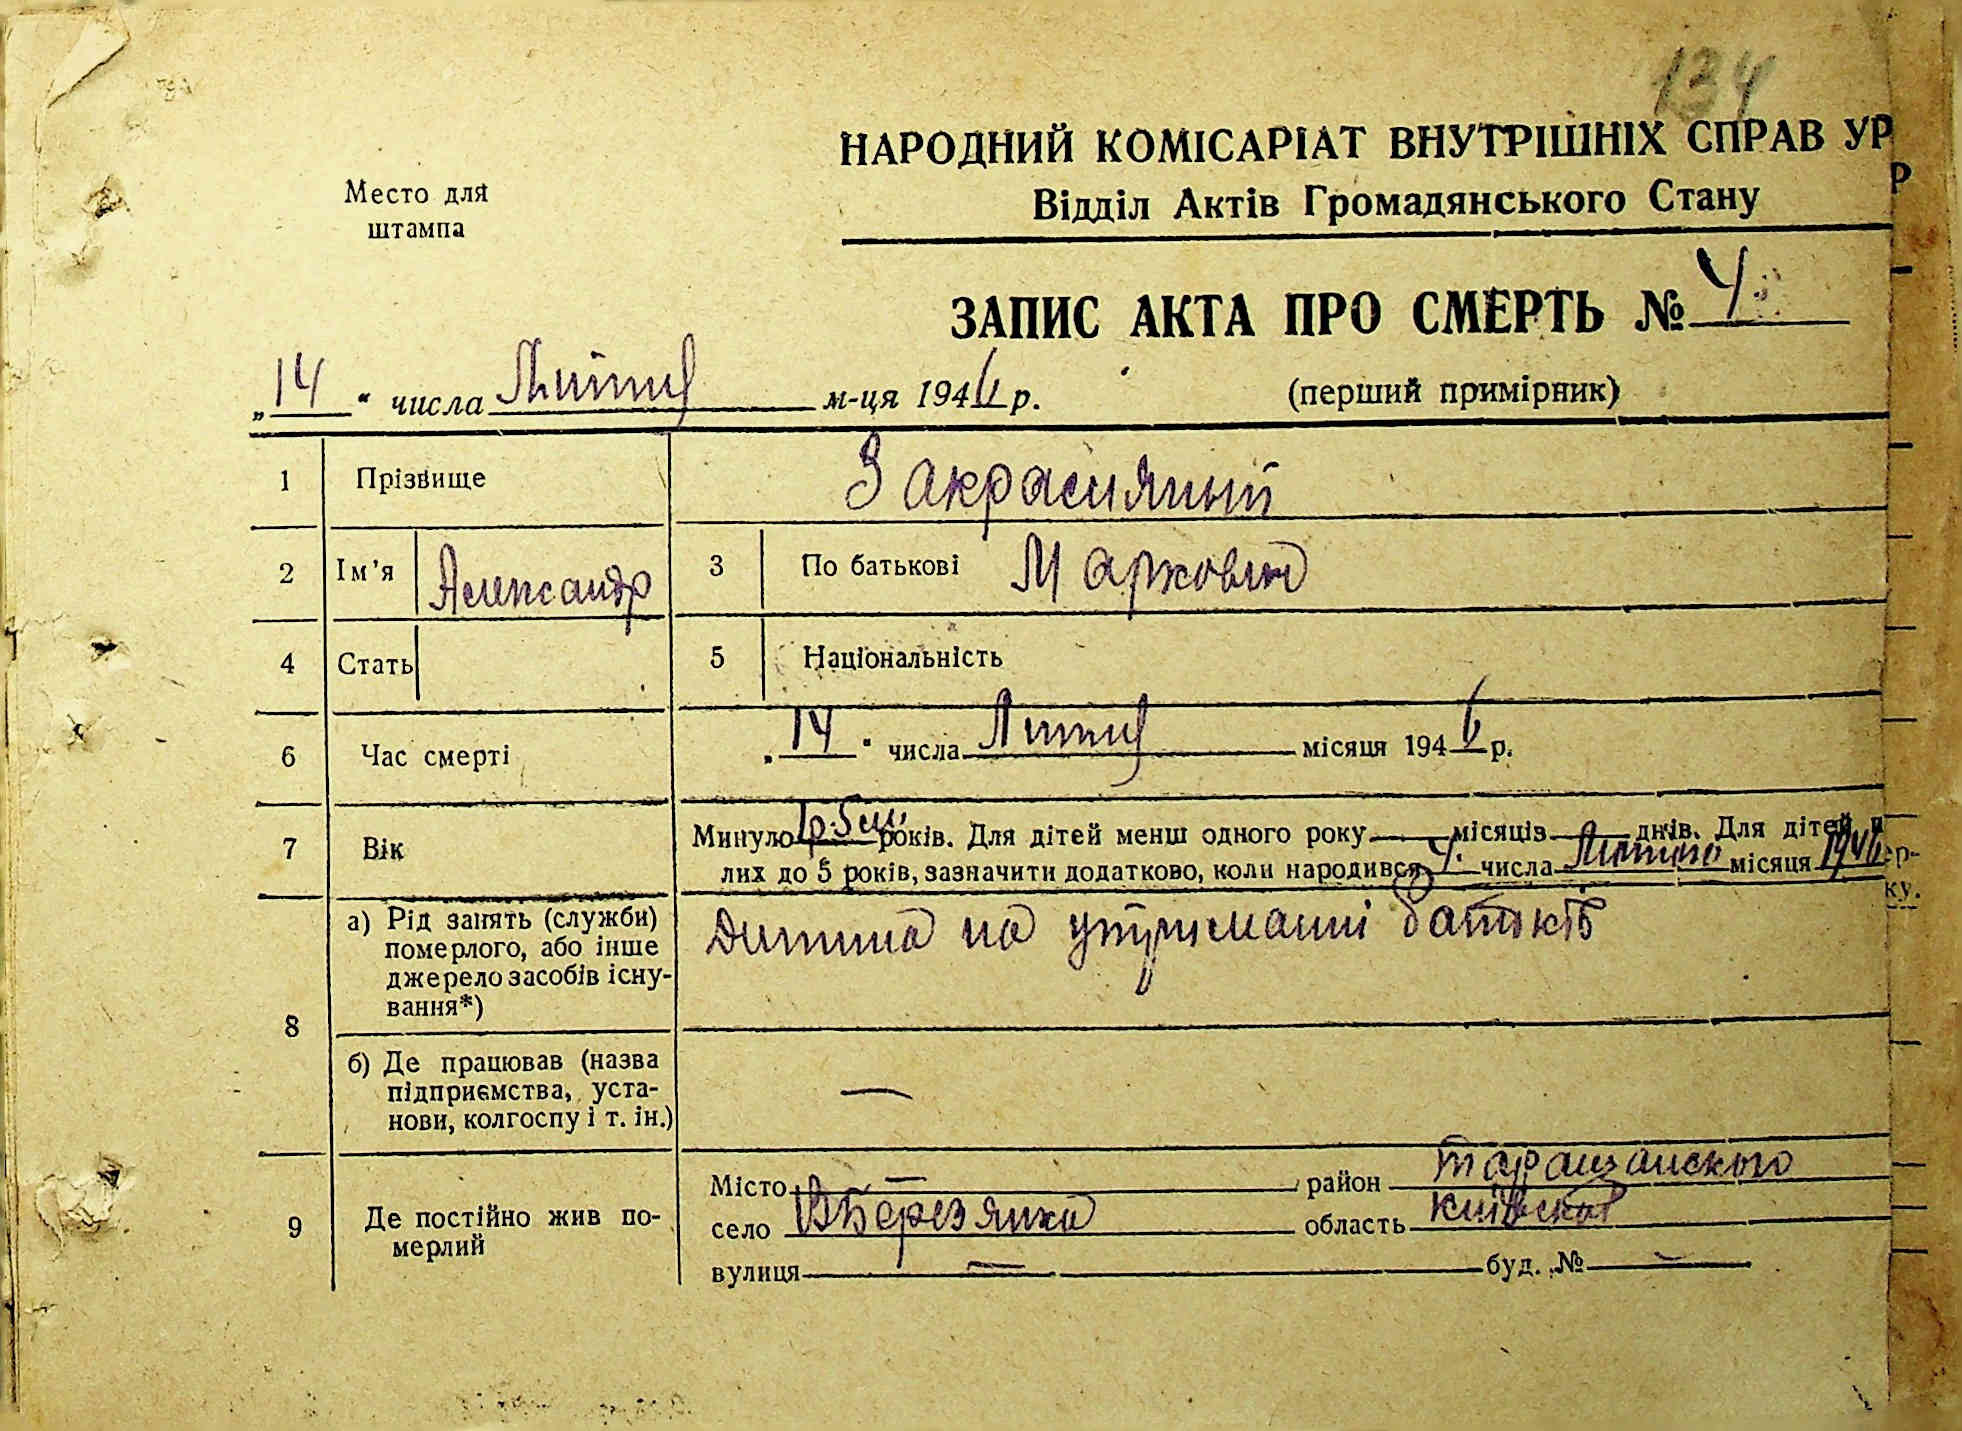 134
НАРОДНИЙ КОМІСАРІАТ ВНУТРІШНІХ СПРАВ УР
Р
Відділ Актів Громадянського Стану
Место для
штампа
ЗАПИС АКТА ПРО СМЕРТЬ № 4
„14“ числа м-ця 1946 р. (перший примірник)
1 Прізвище
2 Ім'я Александр 3 По батькові Маркович
4 Стать 5 Національність
6 Час смерті „14“ числа місяця 1946 р.
7 Вік Минуло 1р. 5 років. Для дітей менш одного року місяців днів. Для дітей
лих до 5 років, зазначити додатково, коли народився 4. числа Лютого місяця 1946
ер-
ку.
8 а) Рід занять (служби) померлого, або інше джерело засобів існування*) Дитина на утриманні батьків
б) Де працював (назва
підприємства, уста-
нови, колгоспу і т. ін.) —
9 Де постійно жив по-
мерлий
Місто — район Таращанского
село ВБерезянка область Київской
вулиця — буд. № —